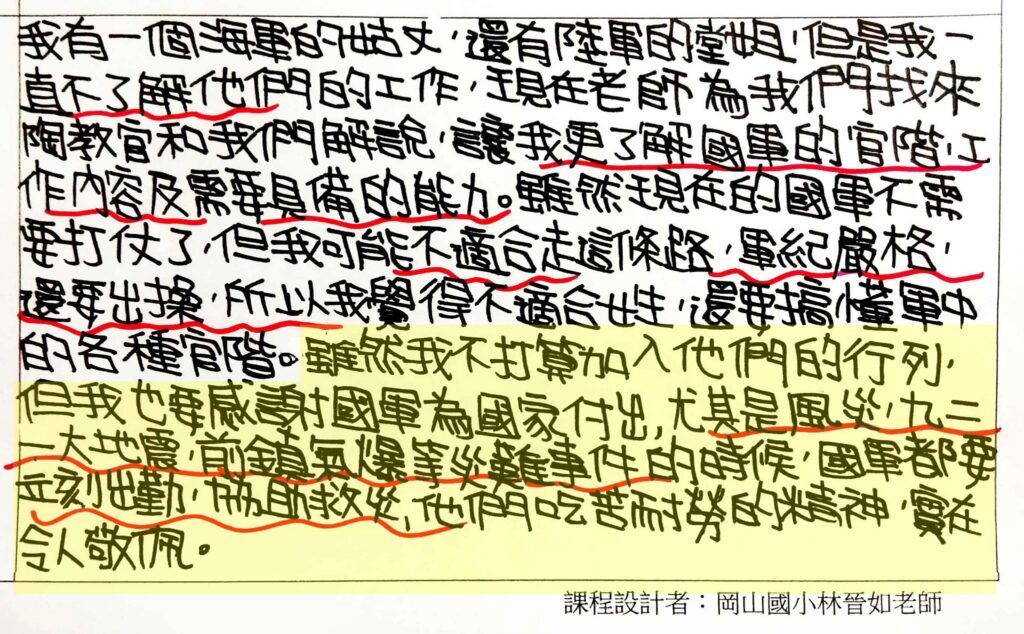 我有一個海軍的姑丈，還有陸軍的堂姐，但是我一
直不了解他們的工作，現在老師為我們找來
陶教官和我們解說，讓我更了解國軍的官階，工
作內容及需要具備的能力。雖然現在的國軍不需
要打仗了，但我可能不適合走這條路，軍紀嚴格，
還要出操，所以我覺得不適合女生，還要搞懂軍中
的各種官階。雖然我不打算加入他們的行列，
但我也要感謝國軍為國家付出，尤其是風災，九二
一大地震，前鎮氣爆等災難事件的時候，國軍都要
立刻出動，協助救災，他們吃苦耐勞的精神，實在
令人敬佩。
課程設計者：岡山國小林晉如老師